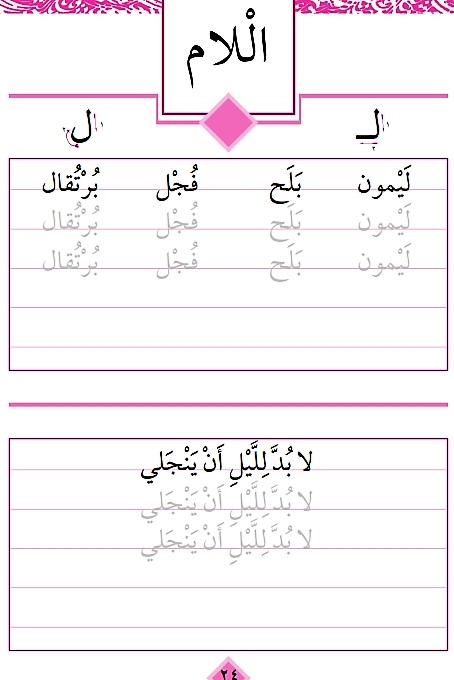 الْلام
لـ ل
لَيْمون بَلَح فُجْل بُرْتُقال
لَيْمون بَلَح فُجْل بُرْتُقال
لَيْمون بَلَح فُجْل بُرْتُقال
لا بُدَّ لِلَّيْلِ أَنْ يَنْجَلي
لا بُدَّ لِلَّيْلِ أَنْ يَنْجَلي
لا بُدَّ لِلَّيْلِ أَنْ يَنْجَلي
٢٤